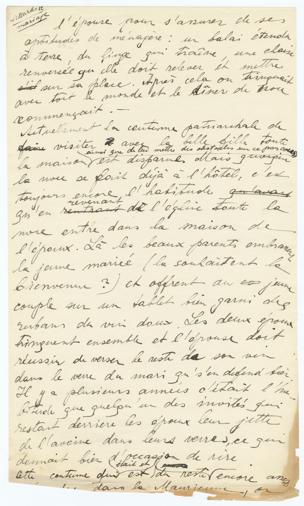 mariage
l'épouse pour s'assurer de ses
aptitudes de ménagère : un balai étendu
à terre, du linge qui traîne, une chaise
renversée qu'elle doit relever et mettre
sur sa place. Après cela on trinquait
avec tout le monde et le dîner de noce
commençait. —
Actuellement la coutume patriarcale de
visiter avec la belle fille toute
la maison est disparue. Mais quoique
la noce se fait déjà à l'hôtel, c'est
toujours encore l'habitude
qu'en revenant de l'église toute la
noce entre dans la maison de
l'époux. Là les beaux parents embrassent
la jeune mariée (la souhaitent la
bienvenue ?) et offrent au jeune
couple sur un tablet bien garni de
rubans du vin doux. Les deux époux
trinquent ensemble et l'épouse doit
réussir de verser le reste de son vin
dans le verre du mari qu s'en défend bien
Il y a plusieurs années c'était l'ha-
bitude que quelqu'un des invités qui
restait derrière les époux leur jette
de l'avoine dans leurs verres, ce qui
donnait bien d'occasion de rire
cette coutume du reste encore
dans la Maurienne, ou